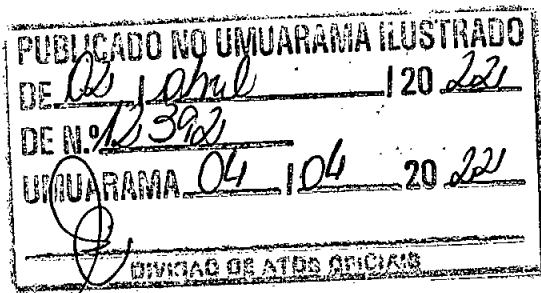 PUBLICADO NO UMUARAMA ILUSTRADO
DE 02 / abril / 20 22
DE N.º 12.392
UMUARAMA 04 / 04 20 22
DIVISÃO DE ATOS OFICIAIS